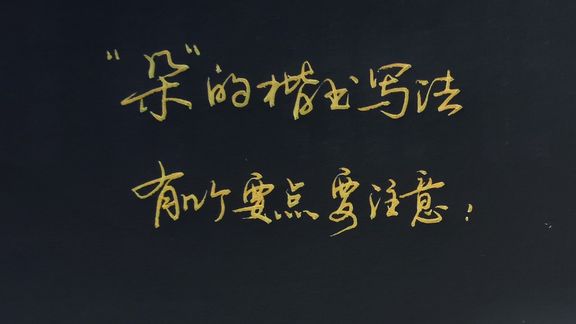 “朵”的楷书写法
有几个要点要注意：